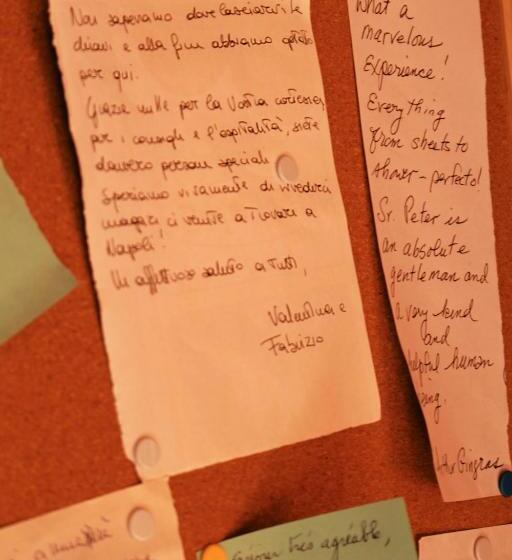 Noi sapevamo dove lasciarvi le
chiavi e alla fine abbiamo optato
per qui.
Grazie mille per la Vostra cortesia,
per i consigli e l'ospitalità, siete
davvero persone speciali.
Speriamo vivamente di rivederci
magari ci venite a trovare a
Napoli!
Un affettuoso saluto a Tutti,
Valentina e
Fabrizio
What a
marvelous
Experience!
Everything
from sheets to
shower - perfecto!
Sr. Peter is
an absolute
gentleman and
a very kind
and
helpful human
being.
Gingras
très agréable,